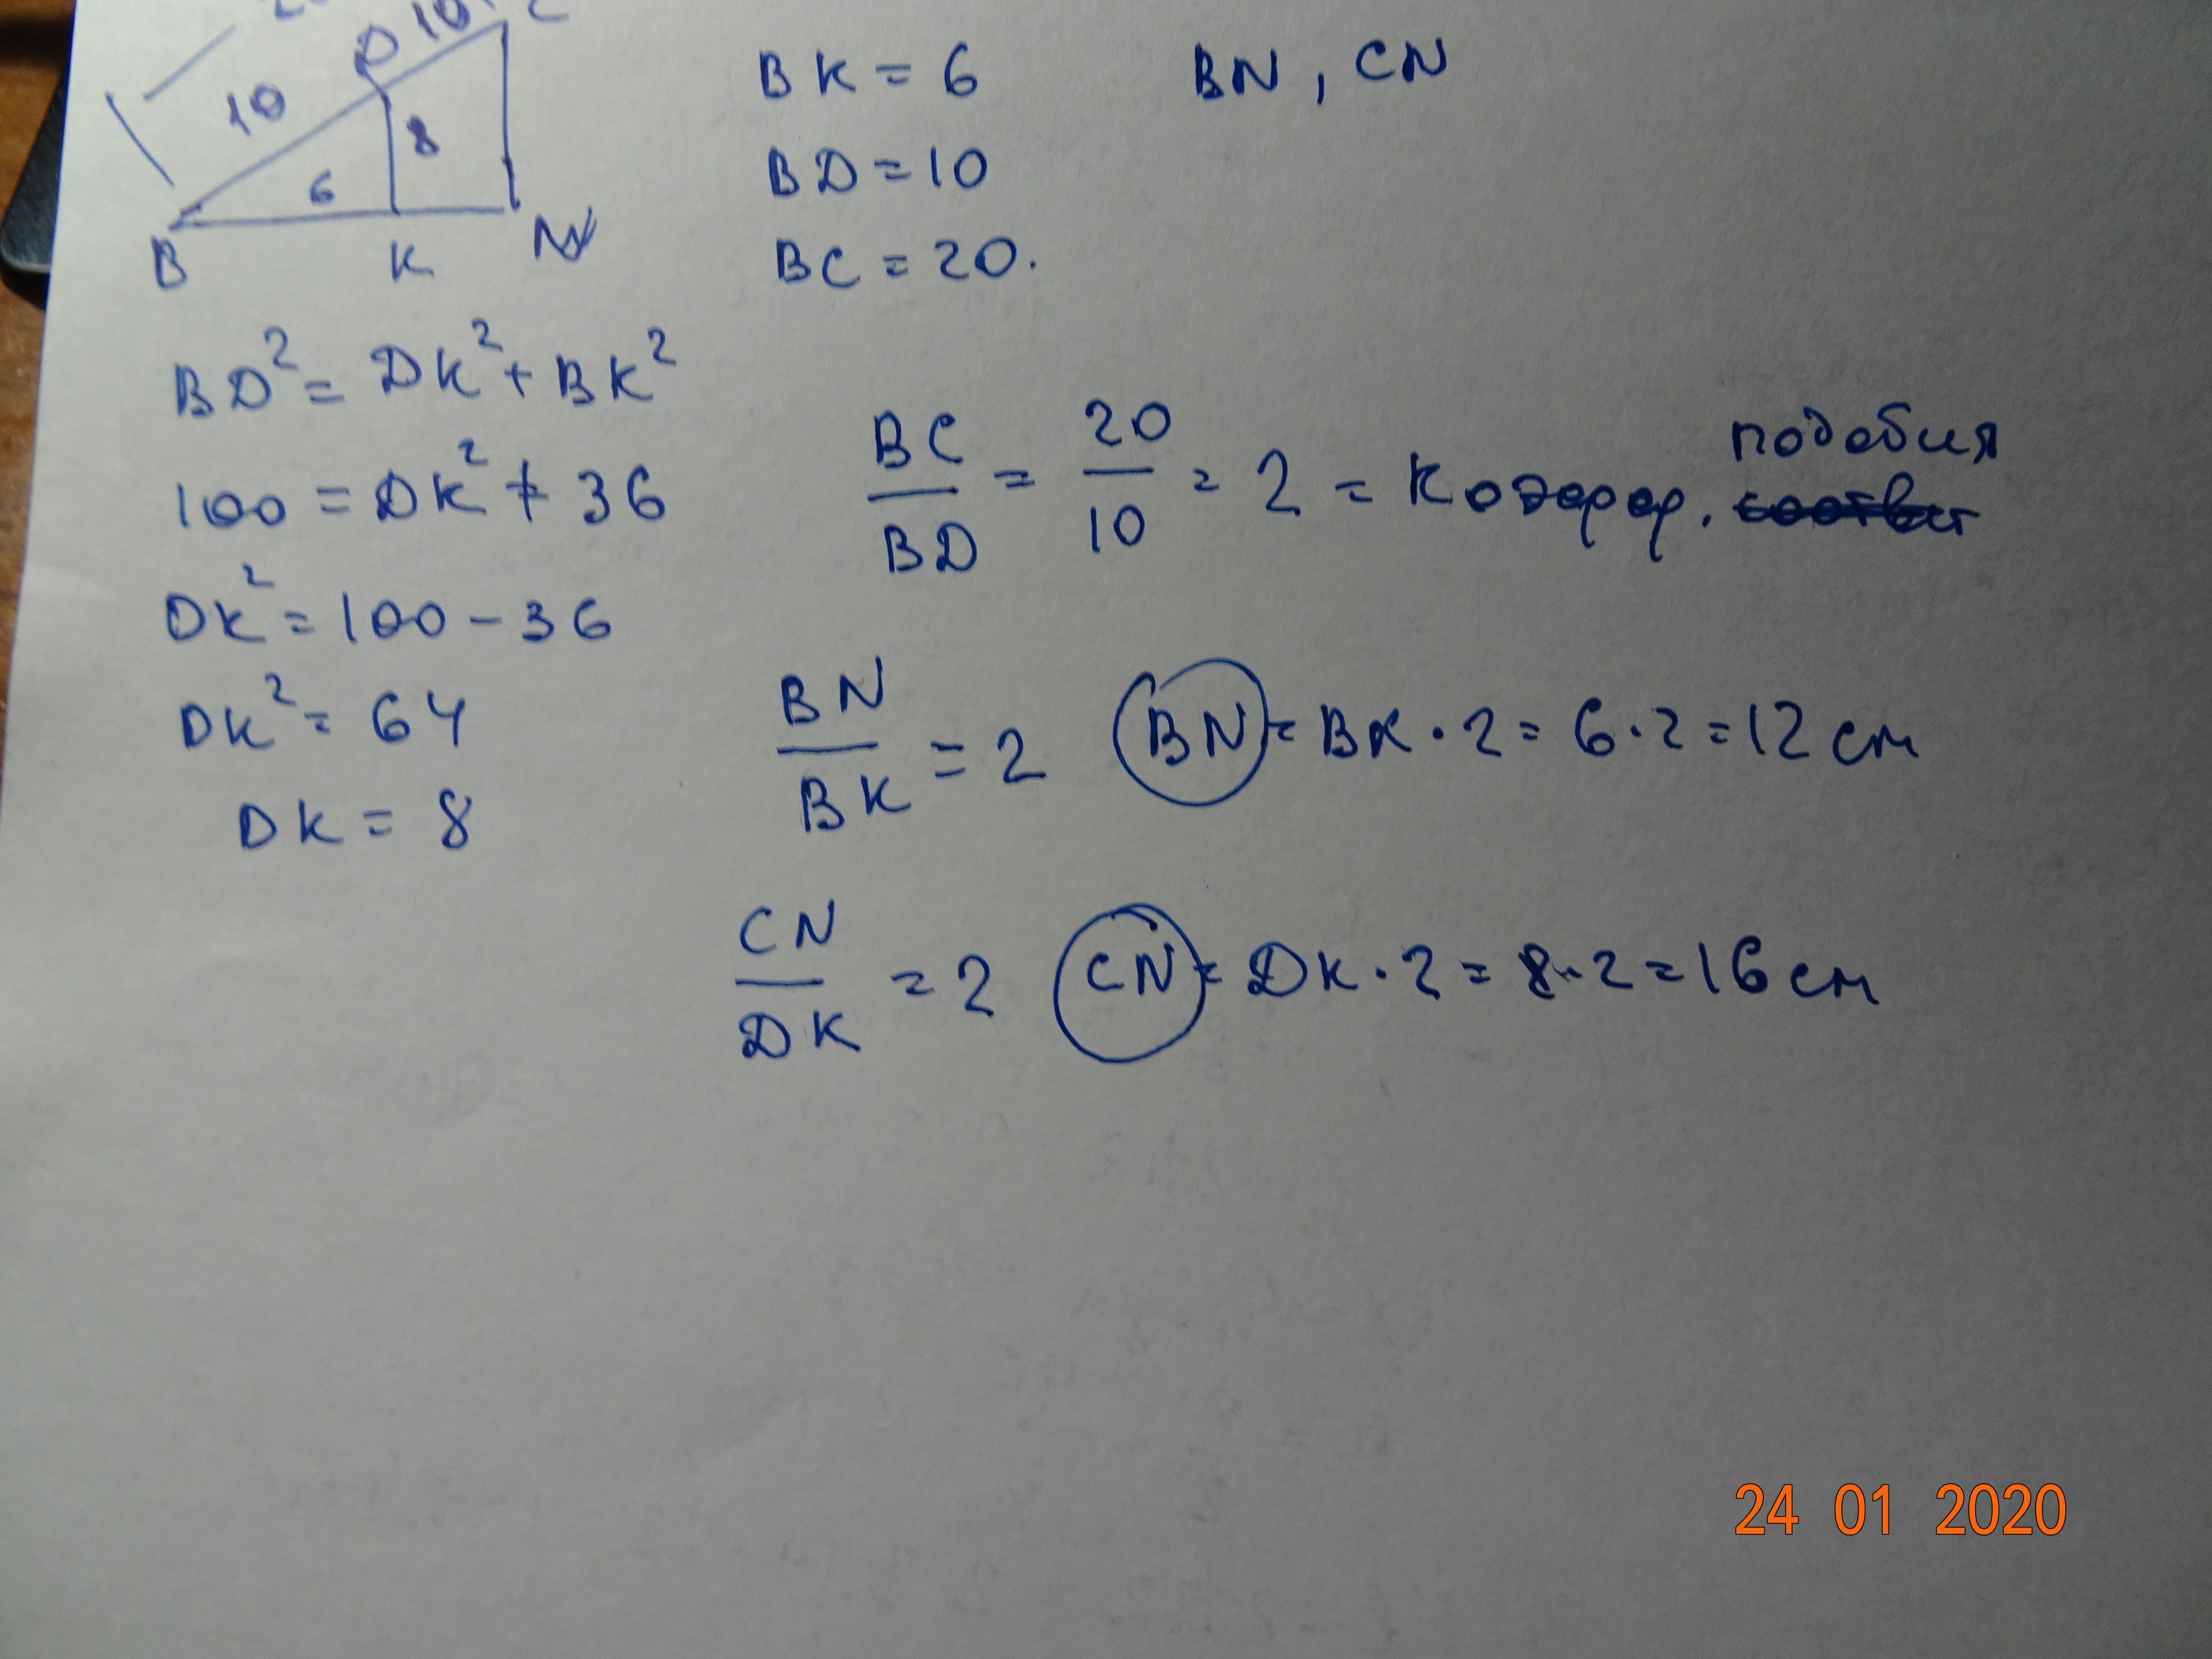 D 10 C
10 8
6
B K N
BK = 6 BN, CN
BD = 10
BC = 20.
BD² = DK² + BK²
100 = DK² + 36
DK² = 100 - 36
DK² = 64
DK = 8
BC/BD = 20/10 = 2 = Коэффиц. подобия
BN/BK = 2 BN = BK · 2 = 6 · 2 = 12 см
CN/DK = 2 CN = DK · 2 = 8 · 2 = 16 см
24 01 2020